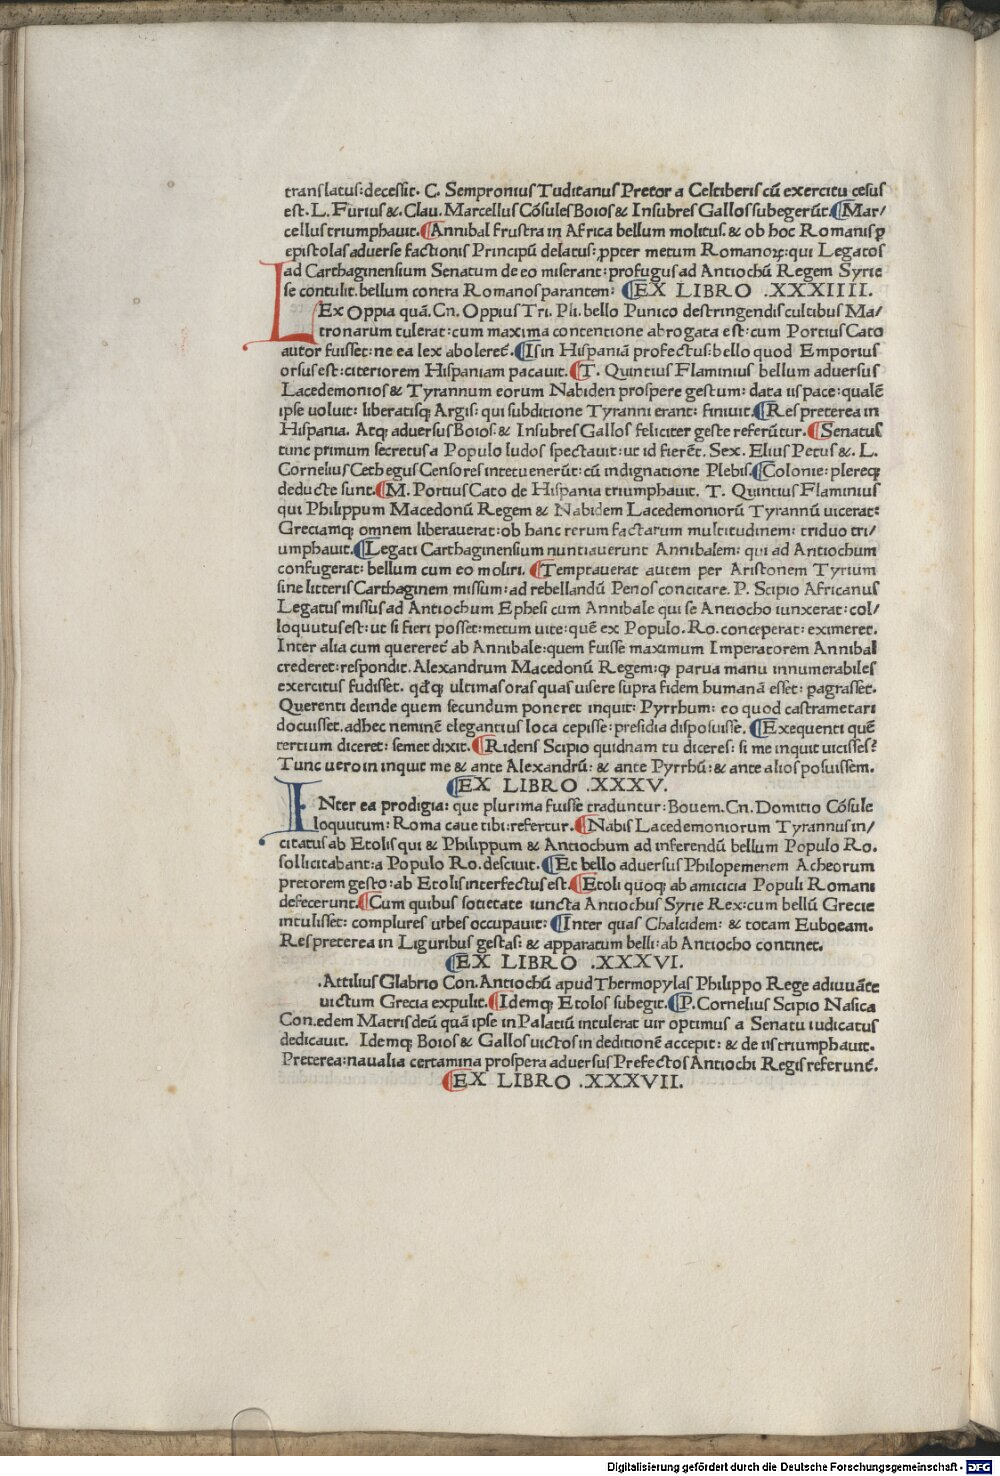 translatus:decessit. C. Sempronius Tuditanus Pretor a Celtiberis cū exercitu cesus
est. L. Furius &. Clau. Marcellus Cōsules Boios & Insubres Gallos subegerūt. ¶Mar/
cellus triumphauit. ¶Annibal frustra in Africa bellum molitus. & ob hoc Romanis ꝑ
epistolas aduerse factionis Principū delatus: ꝓpter metum Romanoꝝ: qui Legatos
ad Carthaginensium Senatum de eo miserant: profugus ad Antiochū Regem Syrie
se contulit. bellum contra Romanos parantem: ¶EX LIBRO .XXXIIII.
LEx Oppia quā. Cn. Oppius Tri. Pli. bello Punico destringendis cultibus Ma/
tronarum tulerat: cum maxima contentione abrogata est: cum Portius Cato
autor fuisset: ne ea lex aboleret̄. ¶Is in Hispaniā profectus: bello quod Emporius
orsus est: citeriorem Hispaniam pacauit. ¶T. Quintius Flaminius bellum aduersus
Lacedemonios & Tyrannum eorum Nabiden prospere gestum: data iis pace: qualē
ipse voluit: liberatisq; Argis: qui sub ditione Tyranni erant: finiuit. ¶Res preterea in
Hispania. Atq; aduersus Boios. & Insubres Gallos feliciter geste referūtur. ¶Senatus
tunc primum secretus a Populo ludos spectauit: ut id fierēt. Sex. Elius Petus &. L.
Cornelius Cethegus Censores interuenerūt: cū indignatione Plebis. ¶Colonie: plereq;
deducte sunt. ¶M. Portius Cato de Hispania triumphauit. T. Quintius Flaminius
qui Philippum Macedonū Regem & Nabidem Lacedemoniorū Tyrannū uicerat:
Greciamq; omnem liberauerat: ob hanc rerum factarum multitudinem: triduo tri/
umphauit. ¶Legati Carthaginensium nuntiauerunt Annibalem: qui ad Antiochum
confugerat: bellum cum eo moliri. ¶Temptauerat autem per Aristonem Tyrium
sine litteris Carthaginem missum: ad rebellandū Penos concitare. P. Scipio Africanus
Legatus missus ad Antiochum Ephesi cum Annibale qui se Antiocho iunxerat: col/
loquutus est: ut si fieri posset: metum uite: quē ex Populo. Ro. conceperat: eximeret.
Inter alia cum quereret̄ ab Annibale: quem fuisse maximum Imperatorem Annibal
crederet: respondit. Alexandrum Macedonū Regem: ꝙ parua manu innumerabiles
exercitus fudisset. qd̄q; ultimas oras quas uisere supra fidem humanā esset: ꝑagrasset.
Querenti deinde quem secundum poneret inquit: Pyrrhum: eo quod castrametari
docuisset. adhec neminē elegantius loca cepisse: presidia disposuisse. ¶Exequenti quē
tertium diceret: semet dixit. ¶Ridens Scipio quidnam tu diceres: si me inquit uicisses?
Tunc uero in inquit me & ante Alexandrū: & ante Pyrrhū: & ante alios posuissem.
¶EX LIBRO .XXXV.
INter ea prodigia: que plurima fuisse traduntur: Bouem. Cn. Domitio Cōsule
loquutum: Roma caue tibi: refertur. ¶Nabis Lacedemoniorum Tyrannus in/
citatus ab Etolis qui & Philippum & Antiochum ad inferendū bellum Populo Ro.
sollicitabant: a Populo Ro. desciuit. ¶Et bello aduersus Philopemenem Acheorum
pretorem gesto: ab Etolis interfectus est. ¶Etoli quoq; ab amicicia Populi Romani
defecerunt. ¶Cum quibus societate iuncta Antiochus Syrie Rex: cum bellū Grecie
intulisset: complures urbes occupauit: ¶Inter quas Chalcidem: & totam Euboeam.
Res preterea in Liguribus gestas: & apparatum belli: ab Antiocho continet.
¶EX LIBRO .XXXVI.
.Attilius Glabrio Con. Antiochū apud Thermopylas Philippo Rege adiuuāte
uictum Grecia expulit. ¶Idemq; Etolos subegit. ¶P. Cornelius Scipio Nasica
Con. edem Matris deū quā ipse in Palatiū intulerat uir optimus a Senatu iudicatus
dedicauit. Idemq; Boios & Gallos uictos in deditionē accepit: & de iis triumphauit.
Preterea: naualia certamina prospera aduersus Prefectos Antiochi Regis referunt̄.
¶EX LIBRO .XXXVII.
Digitalisierung gefördert durch die Deutsche Forschungsgemeinschaft - DFG